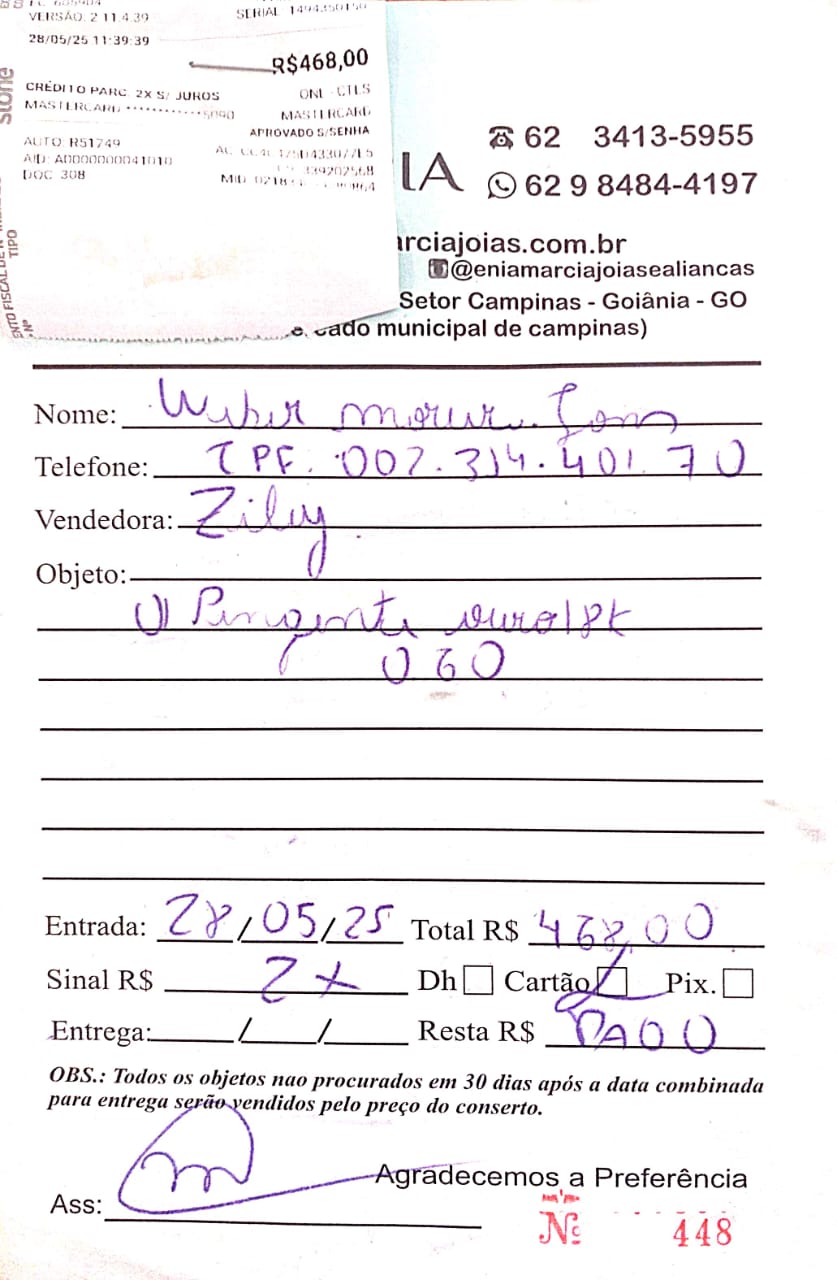 VERSÃO: 2 11.4.39
SERIAL: 1494350150
28/05/25 11:39:39
R$468,00
CRÉDITO PARC. 2X S/ JUROS
ONL-CTLS
MASTERCARD ············5090
MASTERCARD
APROVADO S/SENHA
AUTO: R51749
AID: A0000000041010
DOC 308
stone
TIPO
IA
62 3413-5955
62 9 8484-4197
rciajoias.com.br
@eniamarciajoiasealiancas
Setor Campinas - Goiânia - GO
cado municipal de campinas)
Nome:
Telefone: CPF. 002.314.401.70
Vendedora: Zily
Objeto:
01 Pingente ouro 18k
060
Entrada: 28/05/25 Total R$ 468,00
Sinal R$ 2x Dh Cartão Pix.
Entrega: / / Resta R$ PAGO
OBS.: Todos os objetos nao procurados em 30 dias após a data combinada
para entrega serão vendidos pelo preço do conserto.
Agradecemos a Preferência
Ass:
Nº 448